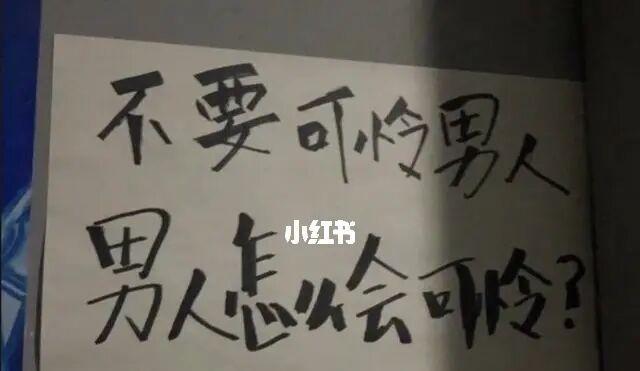 不要可怜男人
小红书
男人怎么会可怜?